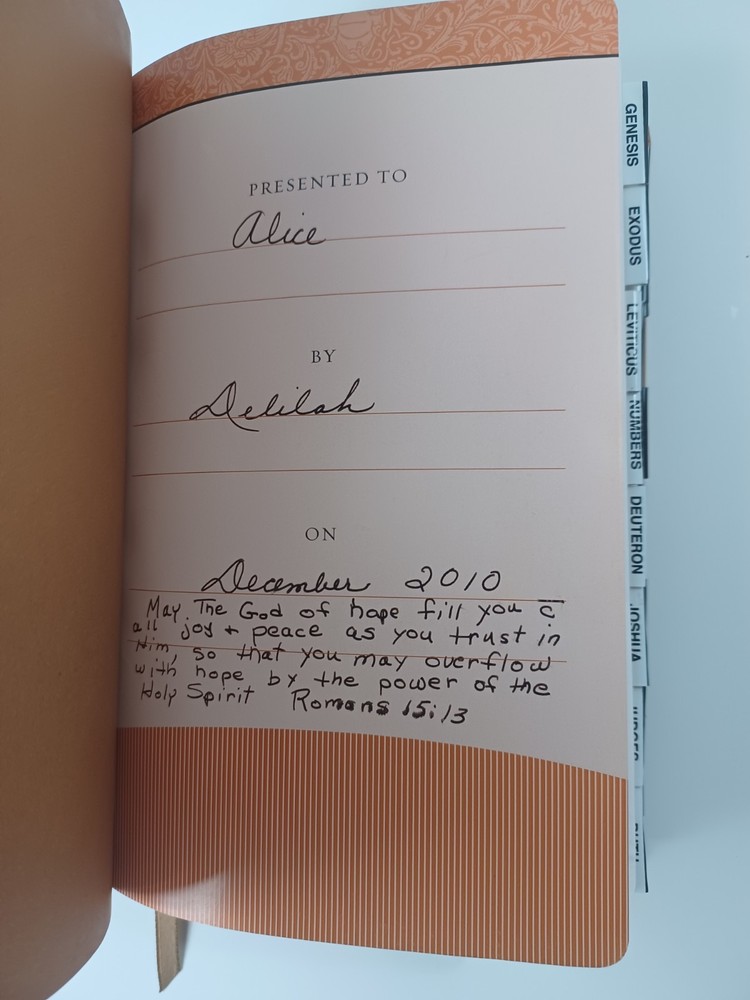 PRESENTED TO
Alice
BY
Delilah
ON
December 2010
May The God of hope fill you c̄
all joy + peace as you trust in
Him, so that you may overflow
with hope by the power of the
Holy Spirit Romans 15:13
GENESIS
EXODUS
LEVITICUS
NUMBERS
DEUTERON
JOSHUA
JUDGES
RUTH